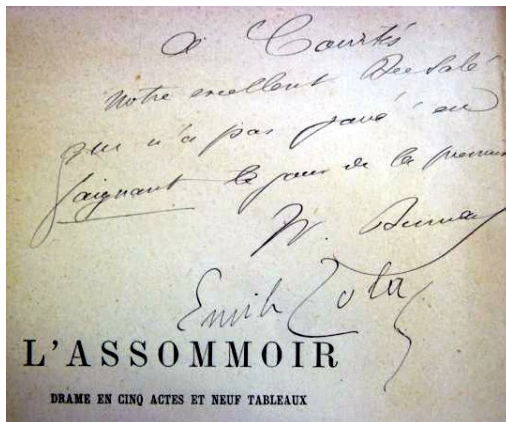 A Courtès
notre excellent Bec Salé
qui n'a pas joué en
faignant le jour de la première
W. Busnach
Emile Zola
L'ASSOMMOIR
DRAME EN CINQ ACTES ET NEUF TABLEAUX